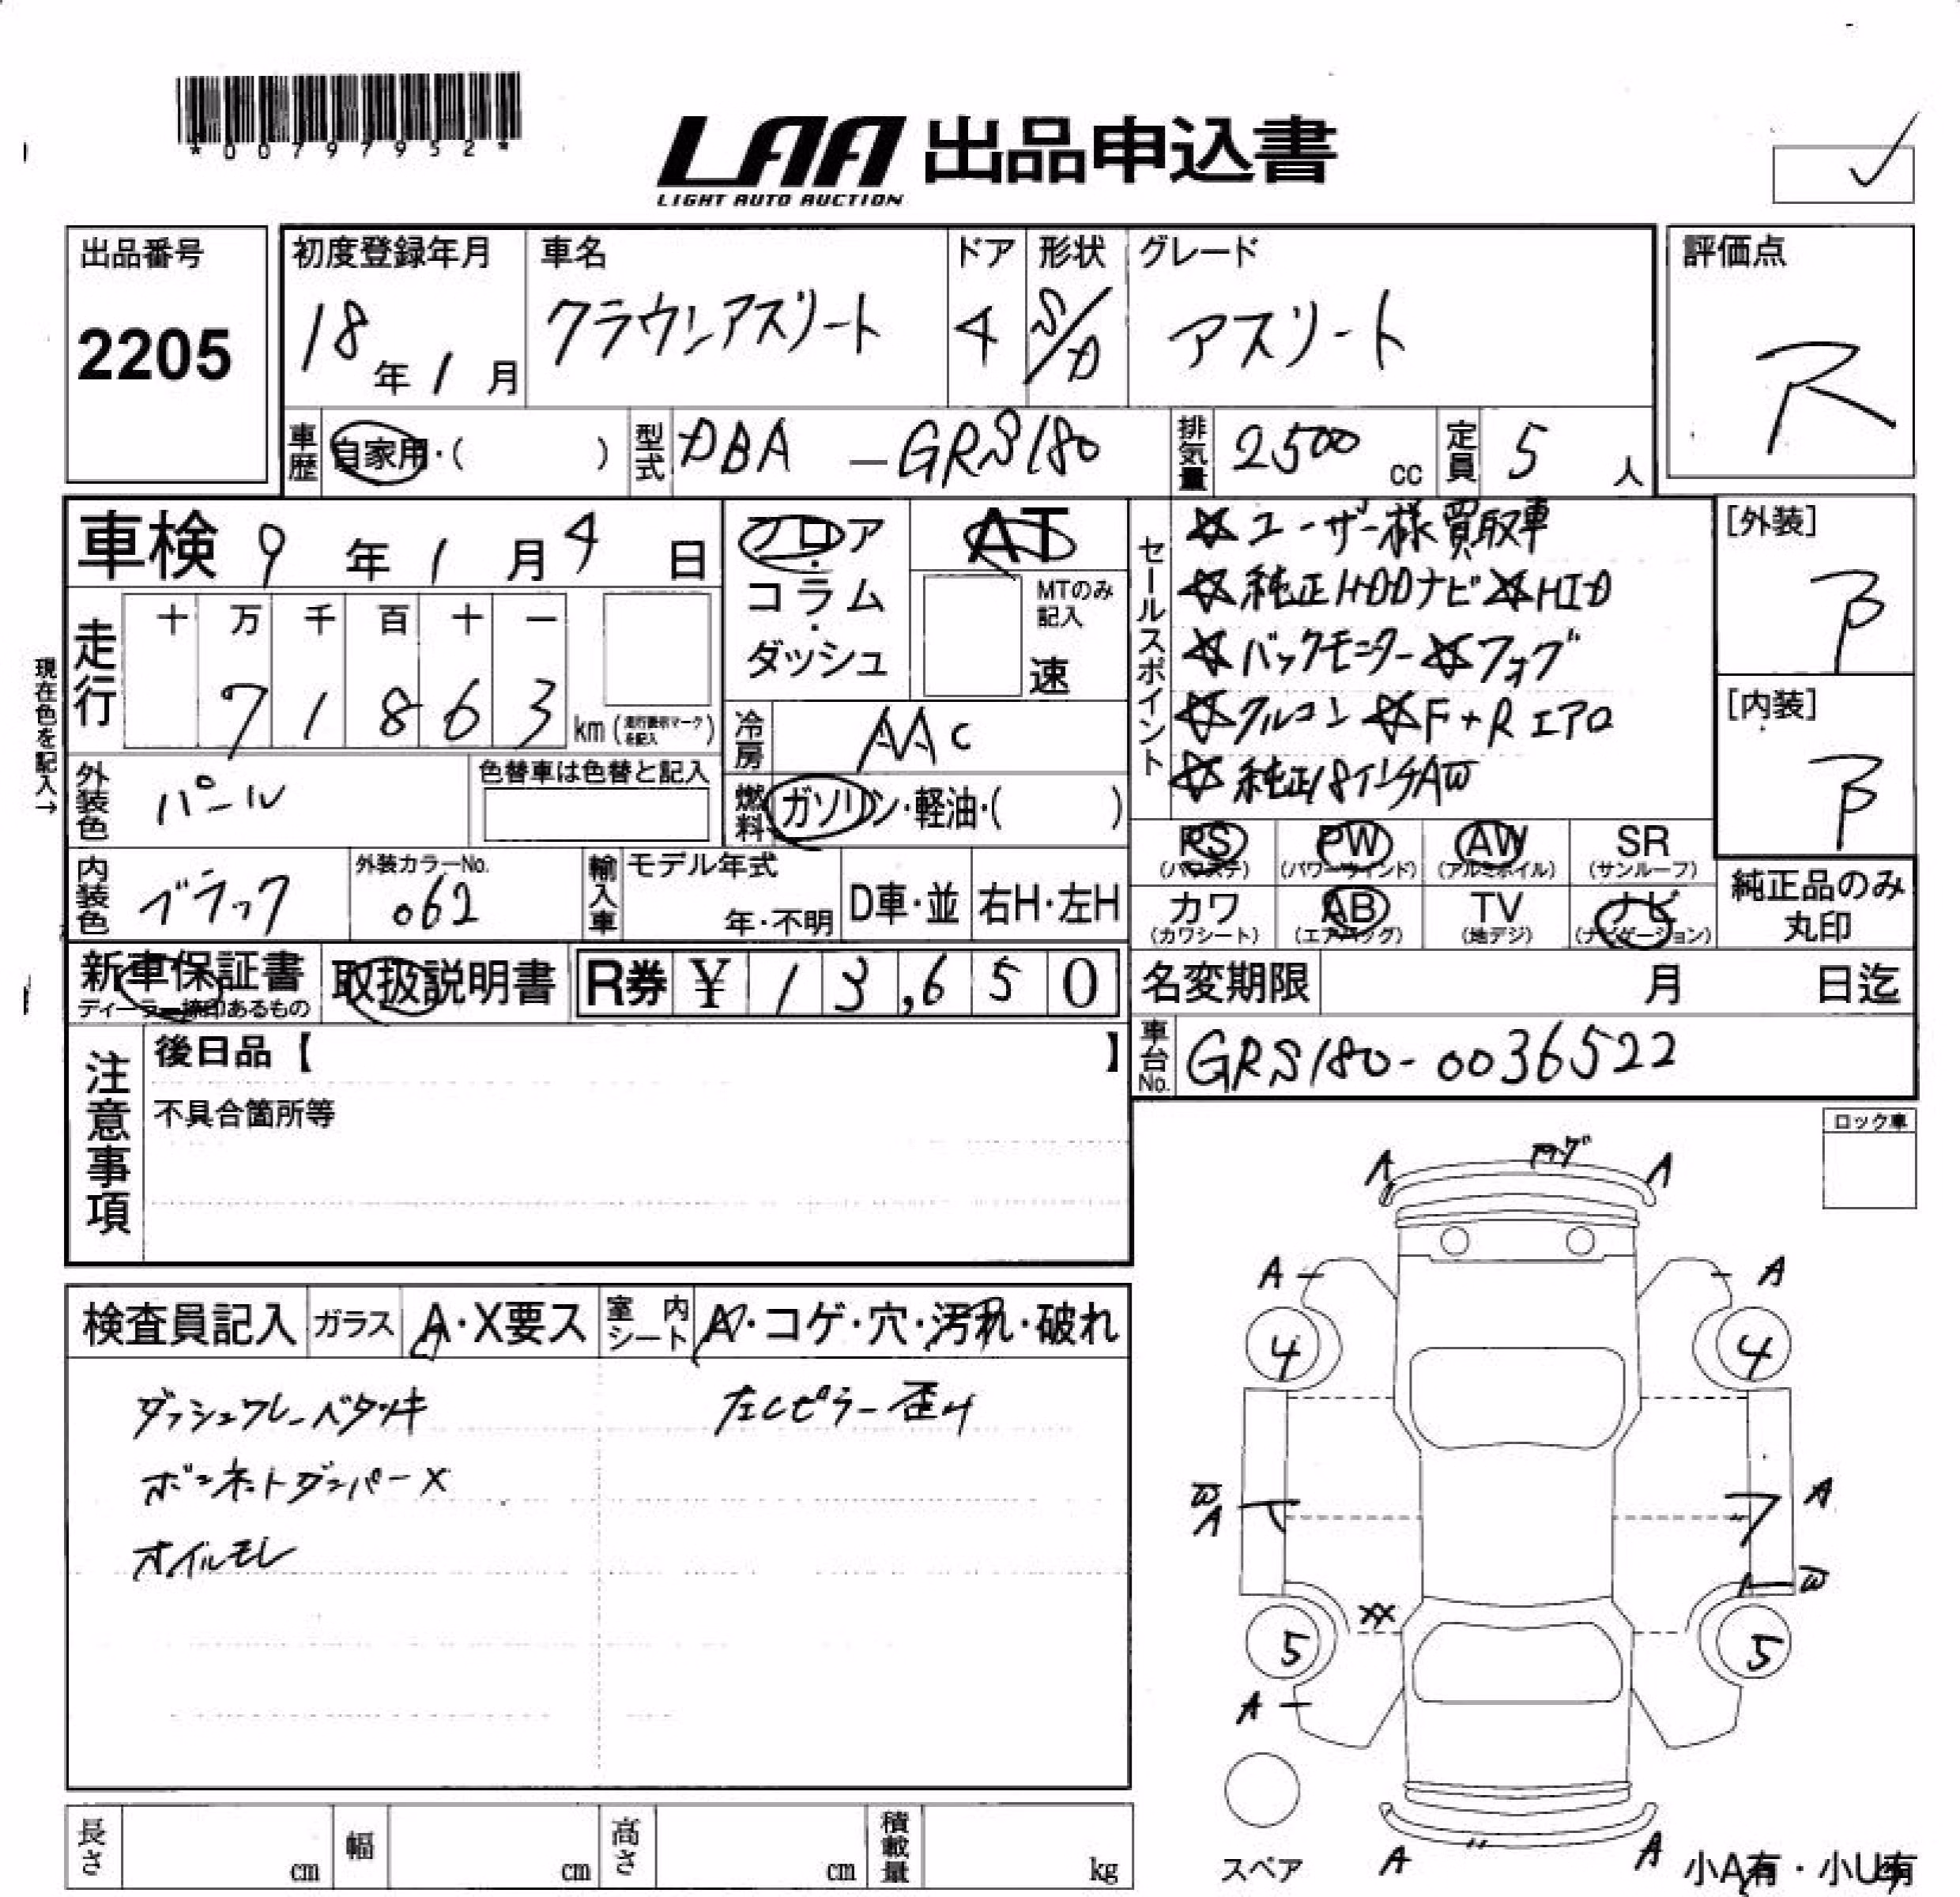 *00797952*
LAA 出品申込書
LIGHT AUTO AUCTION
出品番号
2205
初度登録年月
18年1月
車名
クラウンアスリート
ドア
4
形状
S/D
グレード
アスリート
評価点
R
車歴 自家用・( )
型式 DBA-GRS180
排気量 2500cc
定員 5人
車検 9年1月4日
フロア
コラム
ダッシュ
AT
MTのみ記入
速
セールスポイント
☆ユーザー様買取車
☆純正HDDナビ☆HID
☆バックモニター☆フォグ
☆クルコン☆F+Rエアロ
☆純正18インチAW
[外装]
B
[内装]
B
現在色を記入→
走行
十 万 千 百 十 一
7 1 8 6 3 km(走行表示マークを記入)
冷房 AAC
外装色 パール
色替車は色替と記入
燃料 ガソリン・軽油・( )
内装色 ブラック
外装カラーNo.
062
輸入車
モデル年式
年・不明
D車・並
右H・左H
RS
(パワステ)
PW
(パワーウインド)
AW
(アルミホイル)
SR
(サンルーフ)
カワ
(カワシート)
AB
(エアバッグ)
TV
(地デジ)
ナビ
(ナビゲーション)
純正品のみ
丸印
新車保証書
ディーラー捺印あるもの
取扱説明書
R券 ¥13,650
名変期限 月 日迄
車台No. GRS180-0036522
注意事項
後日品【 】
不具合箇所等
ロック車
検査員記入
ガラス A・X要ス
室内シート A・コゲ・穴・汚れ・破れ
ダッシュクレーベタツキ
ボンネットダンパーX
オイルモレ
左Cピラー歪み
A A
A A
4 4
W
A
A
W
XX
5 5
A
スペア
A A
小A有・小U有
長さ cm
幅 cm
高さ cm
積載量 kg